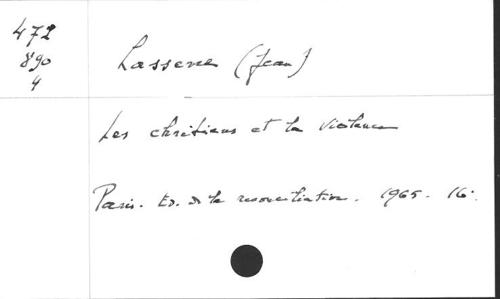 472
890
4
Lasserre (Jean)
Les chrétiens et la violence
Paris. Ed. de la reconciliation. 1965. 16°.